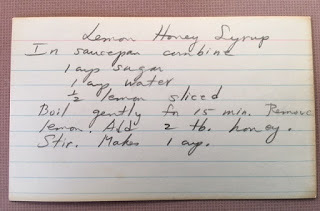 Lemon Honey Syrup
In saucepan combine
1 cup sugar
1 cup water
½ lemon sliced
Boil gently for 15 min. Remove
lemon. Add 2 tb. honey.
Stir. Makes 1 cup.